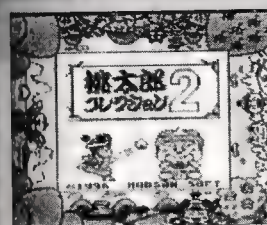 桃太郎
コレクション2
©1996 HUDSON SOFT